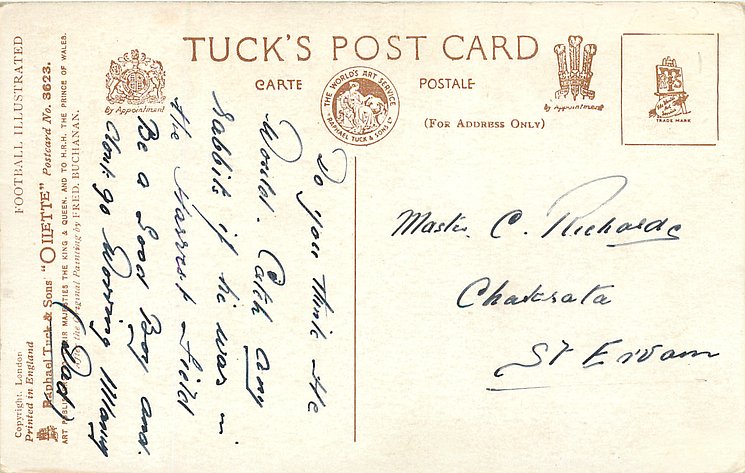 TUCK'S POST CARD
CARTE POSTALE
(FOR ADDRESS ONLY)
By Appointment
THE WORLD'S ART SERVICE
RAPHAEL TUCK & SONS LD
By Appointment
TRADE MARK
FOOTBALL ILLUSTRATED
Copyright. London
Printed in England
Raphael Tuck & Sons' "OILETTE" Postcard No. 3623.
ART PUBLISHERS TO THEIR MAJESTIES THE KING & QUEEN, AND TO H.R.H. THE PRINCE OF WALES.
After the Original Painting by FRED. BUCHANAN.
Do you think He
Would. Catch any
rabbits if he was in
the Harvest Field
Be a Good Boy and.
dont go Worring Mamy
(Dad)
Master C. Richards
Chakrata
St Ervam